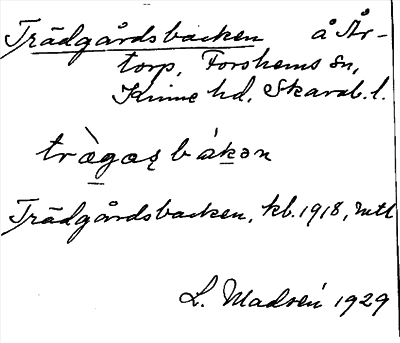 Trädgårdsbacken å År-
torp, Forshems sn,
Kinne hd, Skarab. l.
trægaʂbákən
Trädgårdsbacken, kb. 1918, mtl
L. Madsén 1929